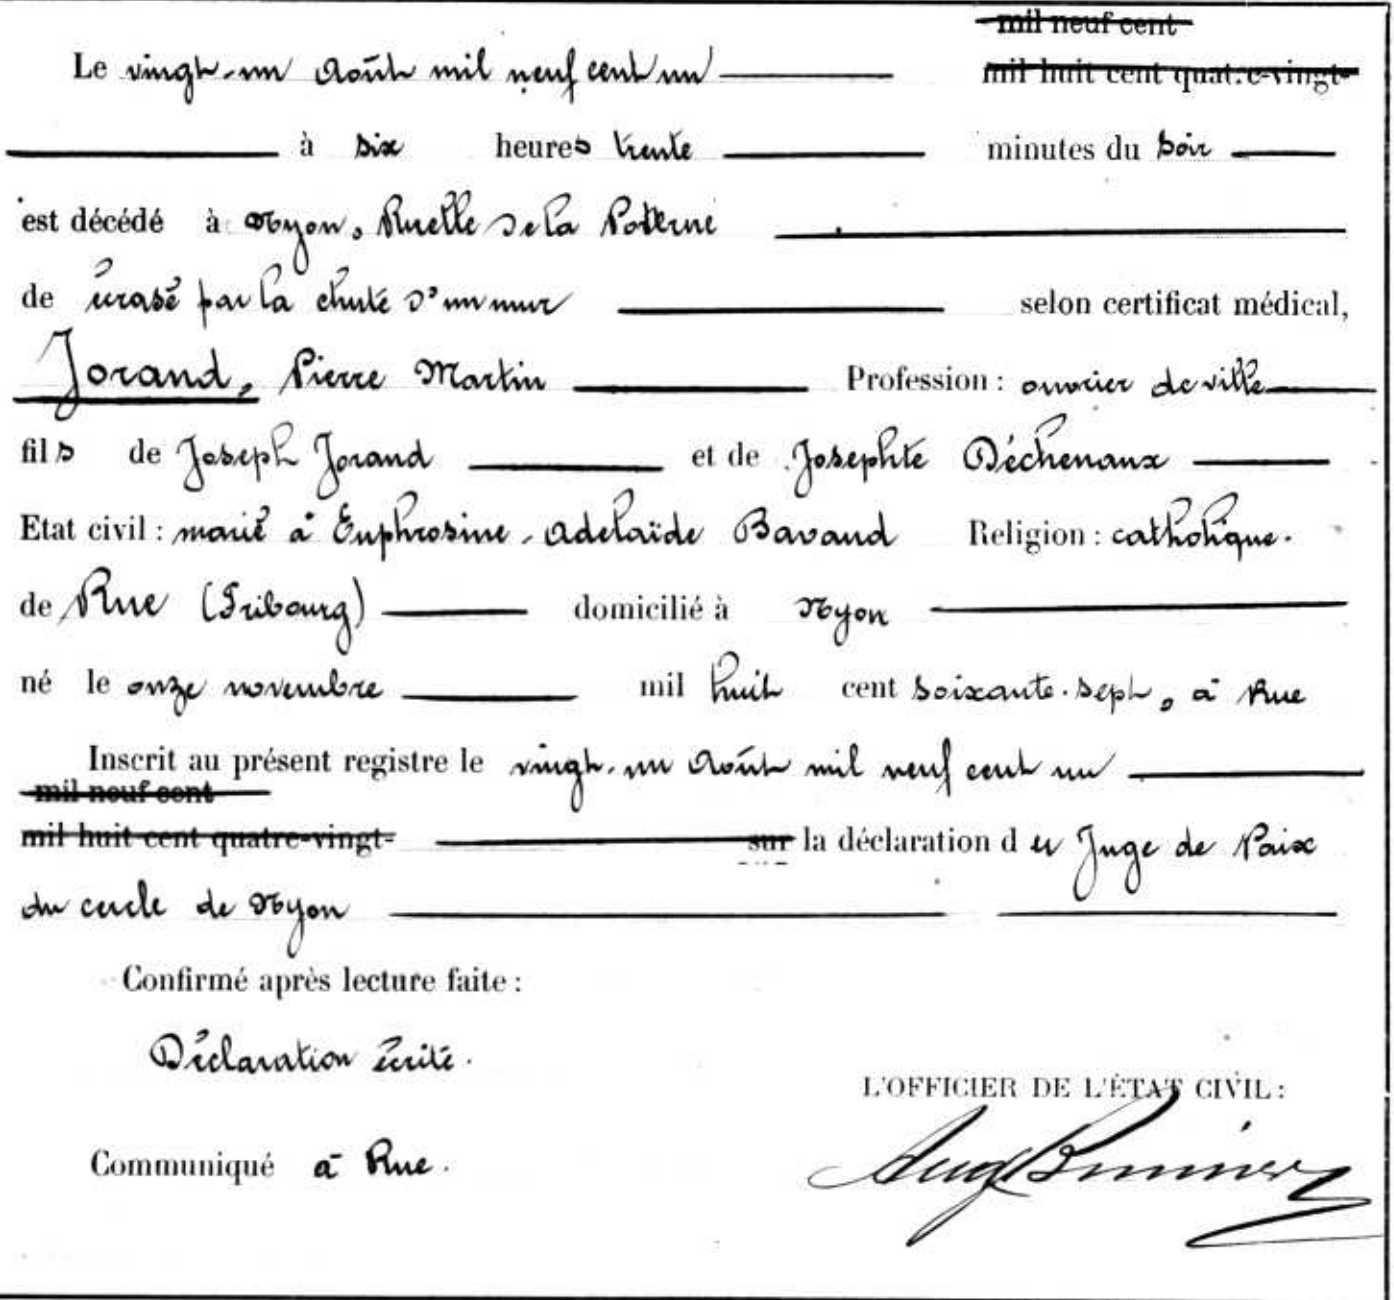 mil neuf cent
Le vingt-un Août mil neuf cent un mil huit cent quatre-vingt-
à six heures trente minutes du soir
est décédé à Nyon, Ruelle de la Poterne
de écrasé par la chute d'un mur selon certificat médical,
Jorand, Pierre Martin Profession : ouvrier de ville
fils de Joseph Jorand et de Josephte Déchenaux
Etat civil : marié à Euphrosine-Adelaïde Bavaud Religion : catholique.
de Rue (Fribourg) domicilié à Nyon
né le onze novembre mil huit cent soixante-sept, à Rue
Inscrit au présent registre le vingt-un Août mil neuf cent un
mil neuf cent
mil huit cent quatre-vingt- sur la déclaration du Juge de Paix
du cercle de Nyon
Confirmé après lecture faite :
Déclaration écrite.
L'OFFICIER DE L'ÉTAT CIVIL :
Communiqué à Rue.